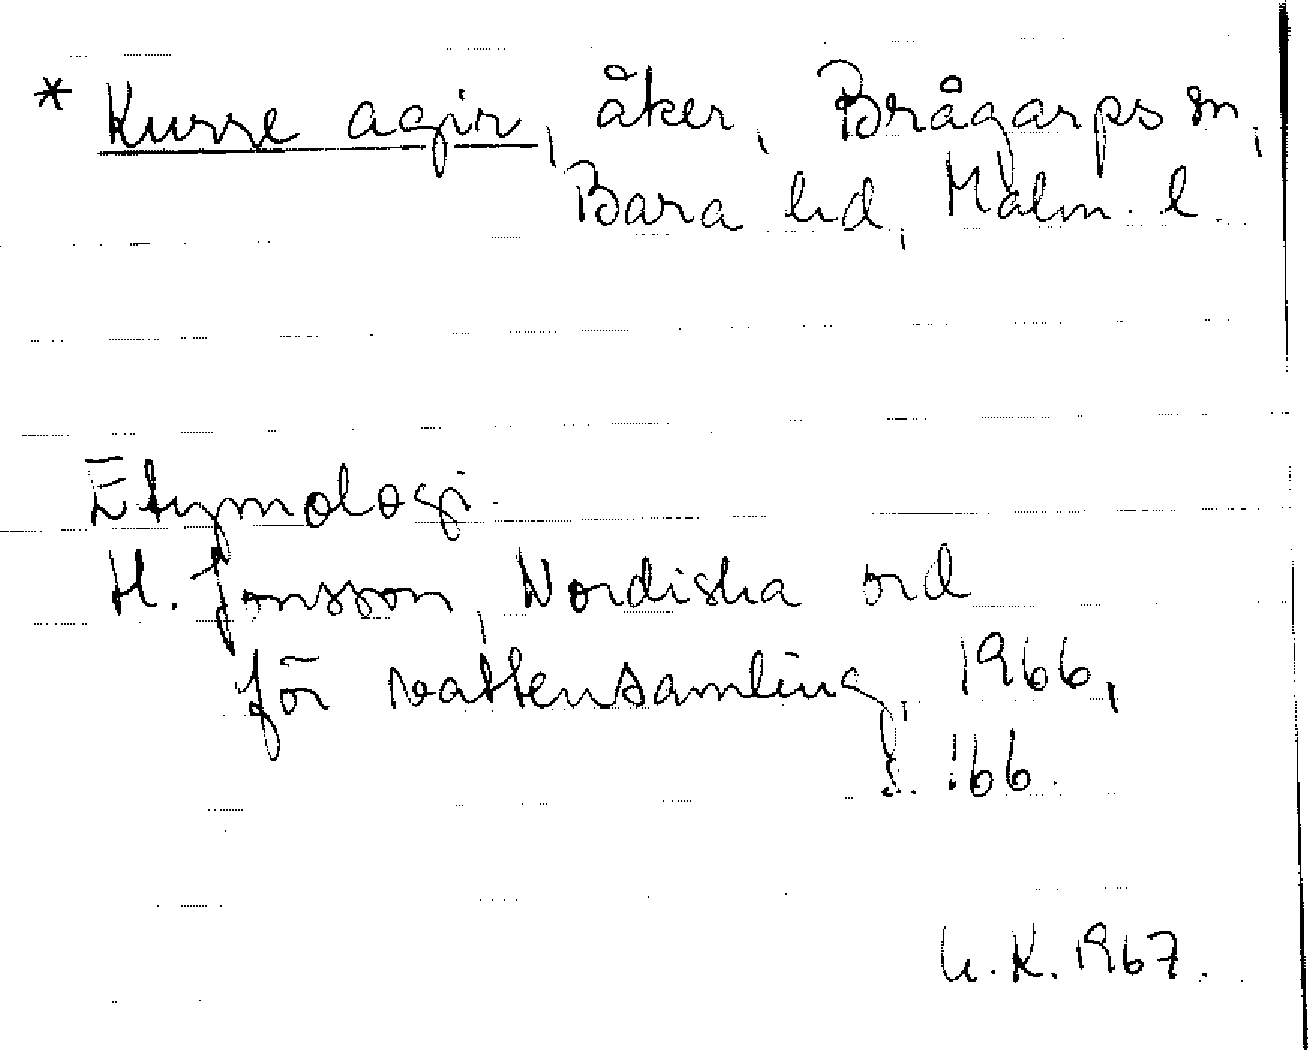 * Kurre agir, åker, Brågarps sn,
Bara hd, Malm. l.
Etymologi.
H. Jonsson, Nordiska ord
för vattensamling, 1966,
s. 166.
K. 1967.